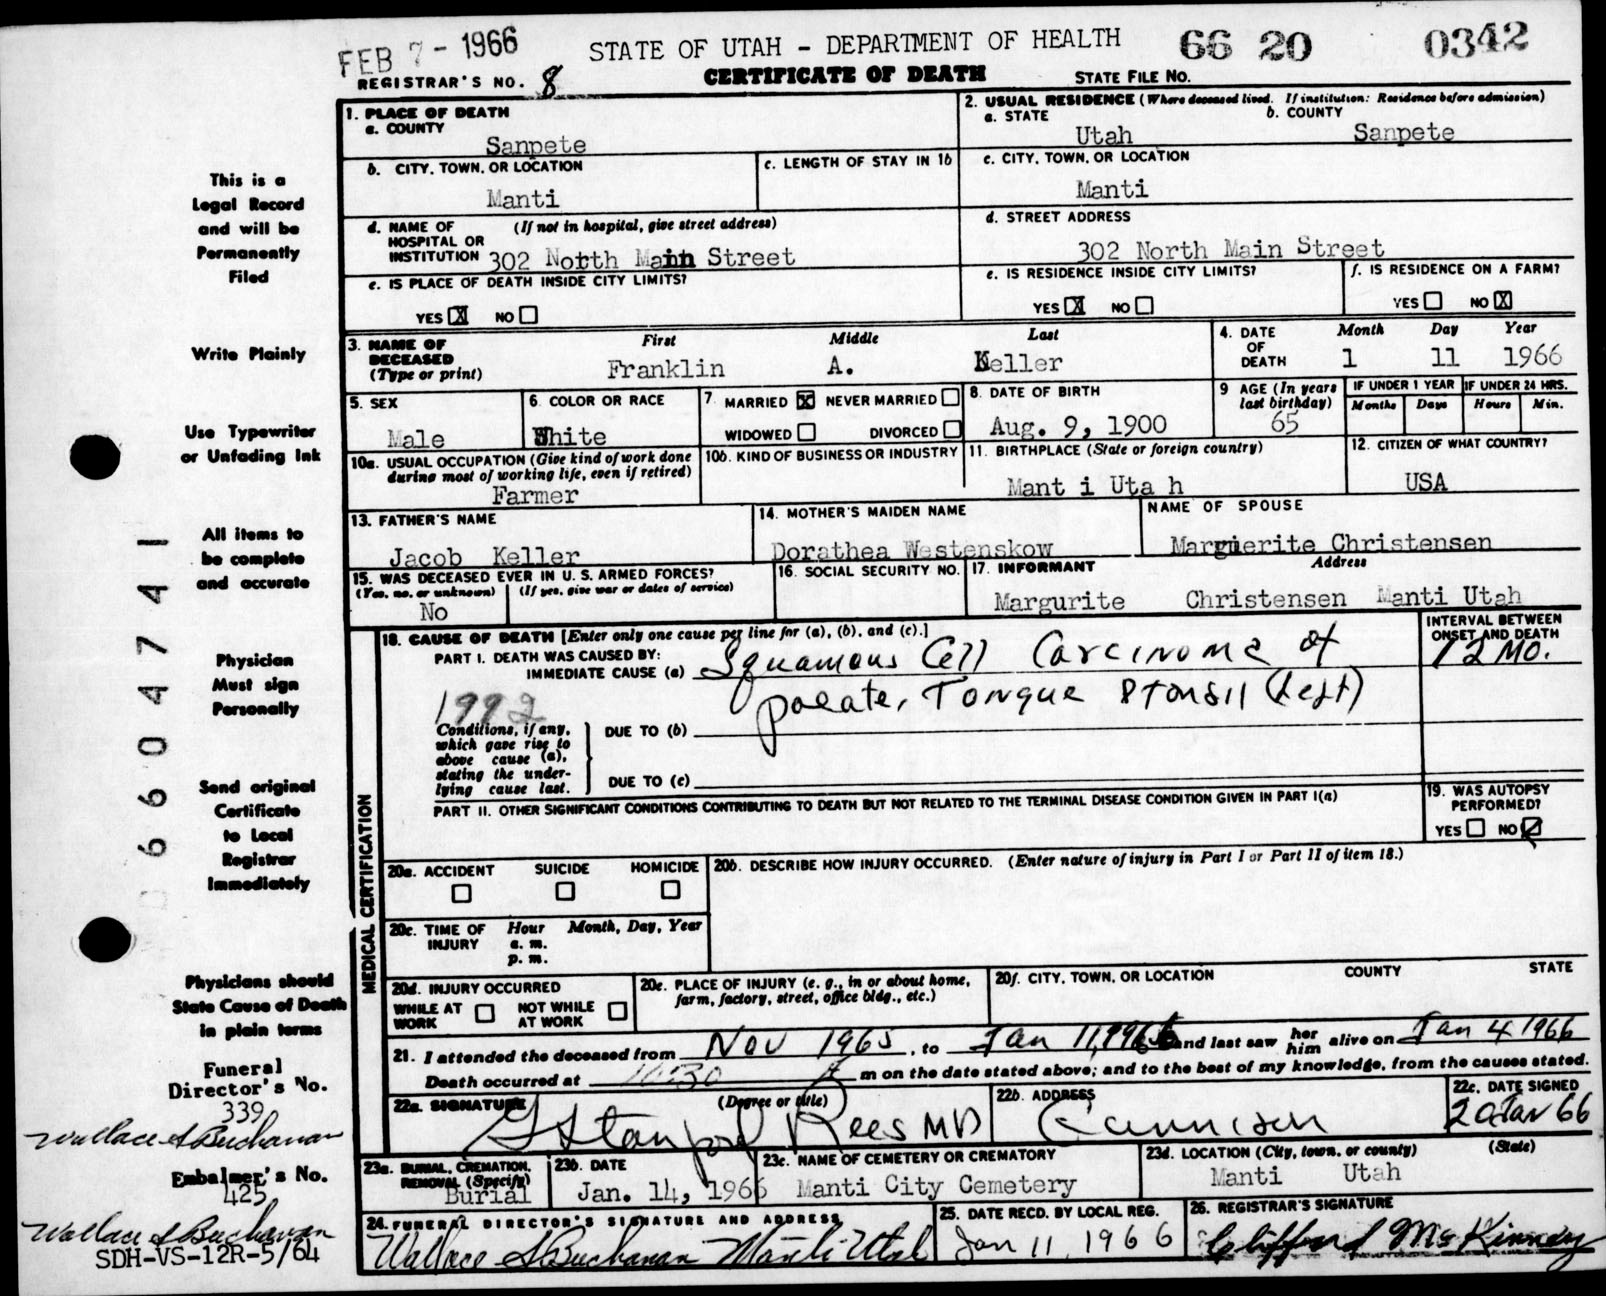 FEB 7 - 1966 STATE OF UTAH - DEPARTMENT OF HEALTH 66 20 0342
REGISTRAR'S NO. 8 CERTIFICATE OF DEATH STATE FILE NO.
1. PLACE OF DEATH
a. COUNTY
Sanpete
2. USUAL RESIDENCE (Where deceased lived. If institution: Residence before admission)
a. STATE b. COUNTY
Utah Sanpete
b. CITY, TOWN, OR LOCATION
Manti
c. LENGTH OF STAY IN 1b
c. CITY, TOWN, OR LOCATION
Manti
d. NAME OF HOSPITAL OR INSTITUTION (If not in hospital, give street address)
302 North Main Street
d. STREET ADDRESS
302 North Main Street
e. IS PLACE OF DEATH INSIDE CITY LIMITS?
YES X NO
e. IS RESIDENCE INSIDE CITY LIMITS?
YES X NO
f. IS RESIDENCE ON A FARM?
YES NO X
3. NAME OF DECEASED (Type or print)
First Middle Last
Franklin A. Keller
4. DATE OF DEATH
Month Day Year
1 11 1966
5. SEX
Male
6. COLOR OR RACE
White
7. MARRIED X NEVER MARRIED
WIDOWED DIVORCED
8. DATE OF BIRTH
Aug. 9, 1900
9 AGE (In years last birthday)
65
IF UNDER 1 YEAR
Months Days
IF UNDER 24 HRS.
Hours Min.
10a. USUAL OCCUPATION (Give kind of work done during most of working life, even if retired)
Farmer
10b. KIND OF BUSINESS OR INDUSTRY
11. BIRTHPLACE (State or foreign country)
Mant i Uta h
12. CITIZEN OF WHAT COUNTRY?
USA
13. FATHER'S NAME
Jacob Keller
14. MOTHER'S MAIDEN NAME
Dorathea Westenskow
NAME OF SPOUSE
Marguerite Christensen
15. WAS DECEASED EVER IN U. S. ARMED FORCES?
(Yes, no, or unknown) (If yes, give war or dates of service)
No
16. SOCIAL SECURITY NO.
17. INFORMANT Address
Margurite Christensen Manti Utah
MEDICAL CERTIFICATION
18. CAUSE OF DEATH [Enter only one cause per line for (a), (b), and (c).]
PART I. DEATH WAS CAUSED BY:
IMMEDIATE CAUSE (a) Squamous Cell Carcinoma of
palate, Tongue & Tonsil (Left)
INTERVAL BETWEEN ONSET AND DEATH
12 MO.
1992
Conditions, if any, which gave rise to above cause (a), stating the underlying cause last.
DUE TO (b)
DUE TO (c)
PART II. OTHER SIGNIFICANT CONDITIONS CONTRIBUTING TO DEATH BUT NOT RELATED TO THE TERMINAL DISEASE CONDITION GIVEN IN PART I(a)
19. WAS AUTOPSY PERFORMED?
YES NO
20a. ACCIDENT SUICIDE HOMICIDE
20b. DESCRIBE HOW INJURY OCCURRED. (Enter nature of injury in Part I or Part II of item 18.)
20c. TIME OF INJURY Hour Month, Day, Year
a. m.
p. m.
20d. INJURY OCCURRED
WHILE AT WORK NOT WHILE AT WORK
20e. PLACE OF INJURY (e. g., in or about home, farm, factory, street, office bldg., etc.)
20f. CITY, TOWN, OR LOCATION COUNTY STATE
21. I attended the deceased from Nov 1965, to Jan 11, 1966 and last saw her him alive on Jan 4 1966
Death occurred at 10:30 A m on the date stated above; and to the best of my knowledge, from the causes stated.
22a. SIGNATURE (Degree or title)
G Stanford Rees MD
22b. ADDRESS
Gunnison
22c. DATE SIGNED
20 Jan 66
23a. BURIAL, CREMATION, REMOVAL (Specify)
Burial
23b. DATE
Jan. 14, 1966
23c. NAME OF CEMETERY OR CREMATORY
Manti City Cemetery
23d. LOCATION (City, town, or county) (State)
Manti Utah
24. FUNERAL DIRECTOR'S SIGNATURE AND ADDRESS
Wallace S Buchanan Manti Utah
25. DATE RECD. BY LOCAL REG.
Jan 11, 1966
26. REGISTRAR'S SIGNATURE
Clifford McKinney
This is a
Legal Record
and will be
Permanently
Filed
Write Plainly
Use Typewriter
or Unfading Ink
All items to
be complete
and accurate
Physician
Must sign
Personally
Send original
Certificate
to Local
Registrar
Immediately
Physicians should
State Cause of Death
in plain terms
Funeral
Director's No.
339
Wallace S Buchanan
Embalmer's No.
425
Wallace S Buchanan
SDH-VS-12R-5/64
06604741